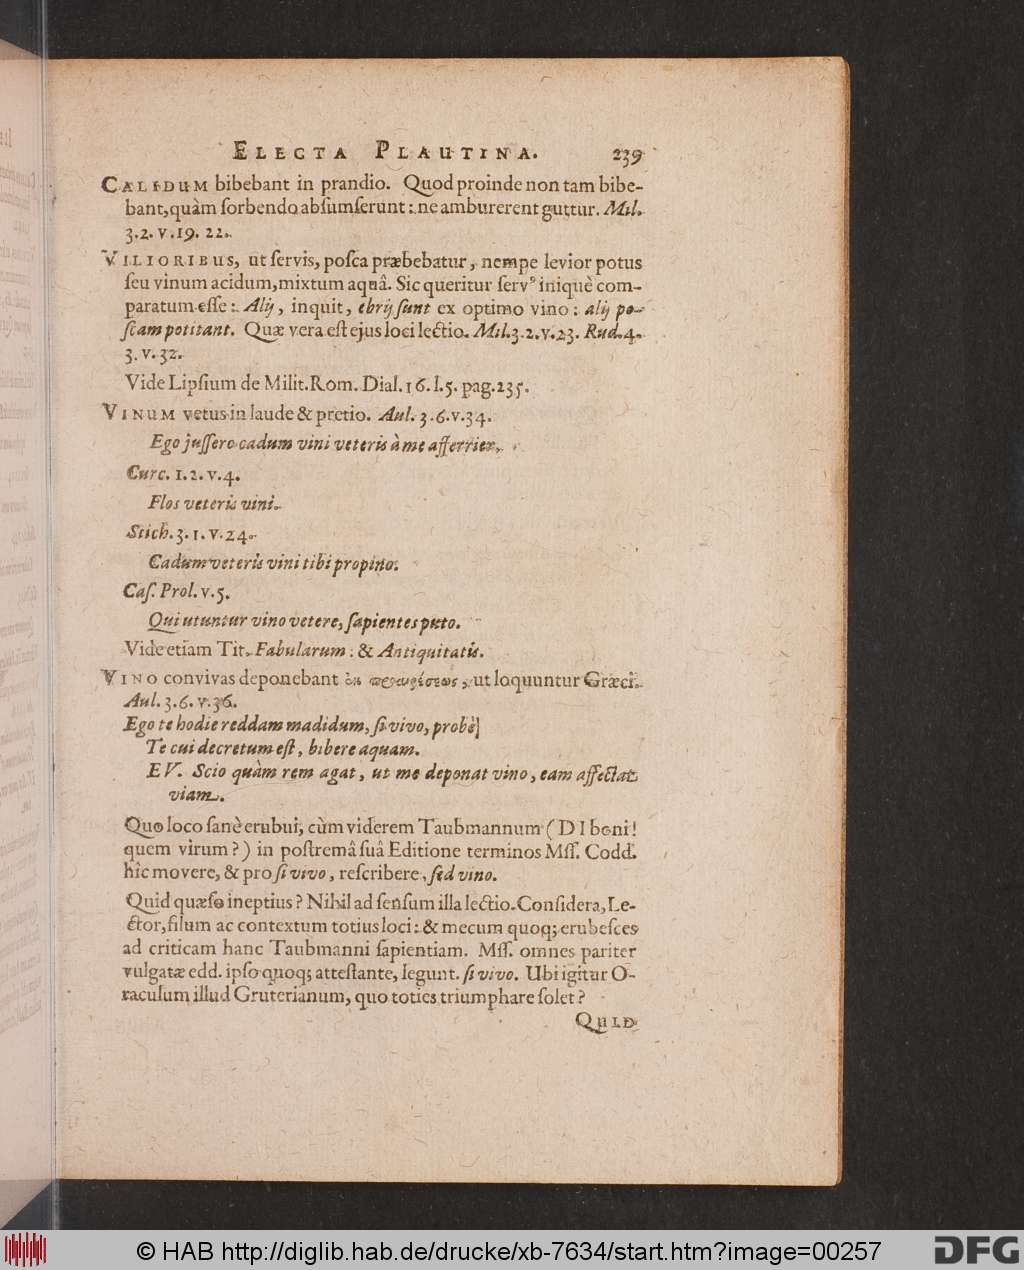 ELECTA PLAUTINA. 239
CALIDUM bibebant in prandio. Quod proinde non tam bibe-
bant, quàm ſorbendo abſumſerunt: ne amburerent guttur. Mil.
3. 2. v. 19. 22.
VILIORIBUS, ut ſervis, poſca præbebatur, nempe levior potus
ſeu vinum acidum, mixtum aquâ. Sic queritur ſervꝰ iniquè com-
paratum eſſe: Alij, inquit, ebrij ſunt ex optimo vino: alij po-
ſcam potitant. Quæ vera eſt ejus loci lectio. Mil. 3. 2. v. 23. Rud. 4.
3. v. 32.
Vide Lipſium de Milit. Rom. Dial. 16. l. 5. pag. 235.
VINUM vetus in laude & pretio. Aul. 3. 6. v. 34.
Ego juſſero cadum vini veteris à me afferrier.
Curc. 1. 2. v. 4.
Flos veteris vini.
Stich. 3. 1. v. 24.
Cadum veteris vini tibi propino.
Caſ. Prol. v. 5.
Qui utuntur vino vetere, ſapientes puto.
Vide etiam Tit. Fabularum: & Antiquitatis.
VINO convivas deponebant ut loquuntur Græci.
Aul. 3. 6. v. 36.
Ego te hodie reddam madidum, ſi vivo, probè
Te cui decretum eſt, bibere aquam.
EV. Scio quàm rem agat, ut me deponat vino, eam affectat
viam.
Quo loco ſanè erubui, cùm viderem Taubmannum (DI boni!
quem virum?) in poſtremâ ſuâ Editione terminos Mſſ. Codd.
hîc movere, & pro ſi vivo, reſcribere, ſed vino.
Quid quæſo ineptius? Nihil ad ſenſum illa lectio. Conſidera, Le-
ctor, filum ac contextum totius loci: & mecum quoq; erubeſces
ad criticam hanc Taubmanni ſapientiam. Mſſ. omnes pariter
vulgatæ edd. ipſo quoq; atteſtante, legunt. ſi vivo. Ubi igitur O-
raculum illud Gruterianum, quo toties triumphare ſolet?
QUID
© HAB http://diglib.hab.de/drucke/xb-7634/start.htm?image=00257
DFG